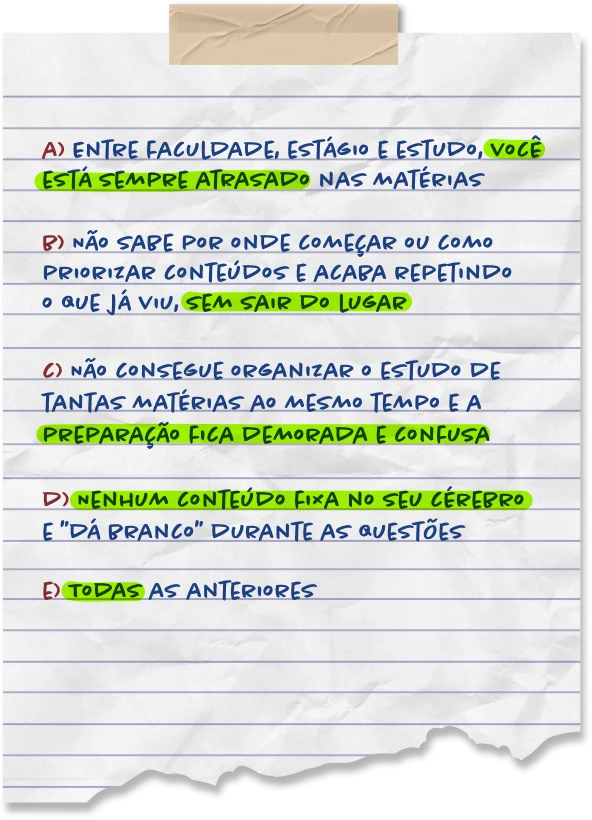 A) ENTRE FACULDADE, ESTÁGIO E ESTUDO, VOCÊ
ESTÁ SEMPRE ATRASADO NAS MATÉRIAS
B) NÃO SABE POR ONDE COMEÇAR OU COMO
PRIORIZAR CONTEÚDOS E ACABA REPETINDO
O QUE JÁ VIU, SEM SAIR DO LUGAR
C) NÃO CONSEGUE ORGANIZAR O ESTUDO DE
TANTAS MATÉRIAS AO MESMO TEMPO E A
PREPARAÇÃO FICA DEMORADA E CONFUSA
D) NENHUM CONTEÚDO FIXA NO SEU CÉREBRO
E "DÁ BRANCO" DURANTE AS QUESTÕES
E) TODAS AS ANTERIORES